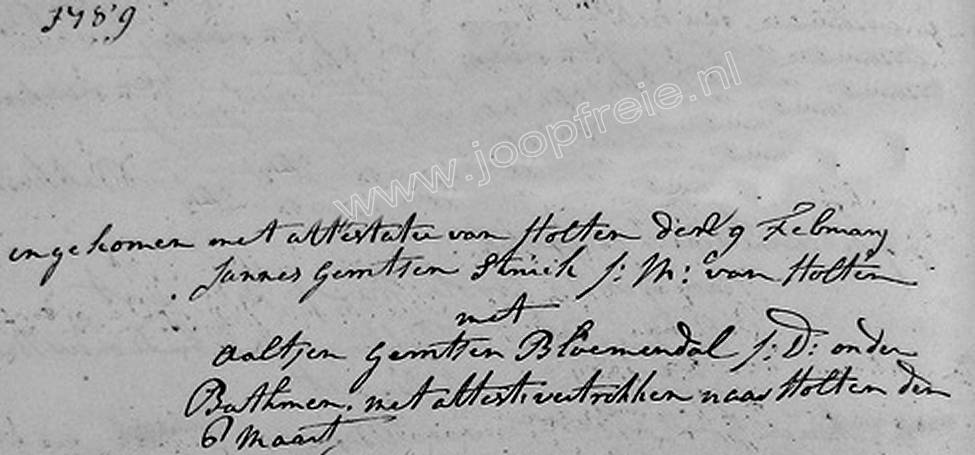 1789
www.joopfreie.nl
ingekomen met attestatie van Holten den 9 Februarij
Jannes Gerritsen Striek J: M: van Holten
met
Aaltjen Gerritsen Bloemendal J: D: onder
Bathmen. met attesti vertrokken naar Holten den
6 Maart